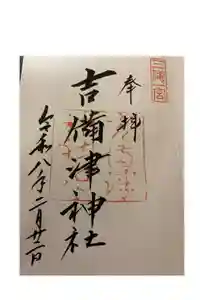 奉拝
三備一宮
吉備津神社
令和八年二月廿二日